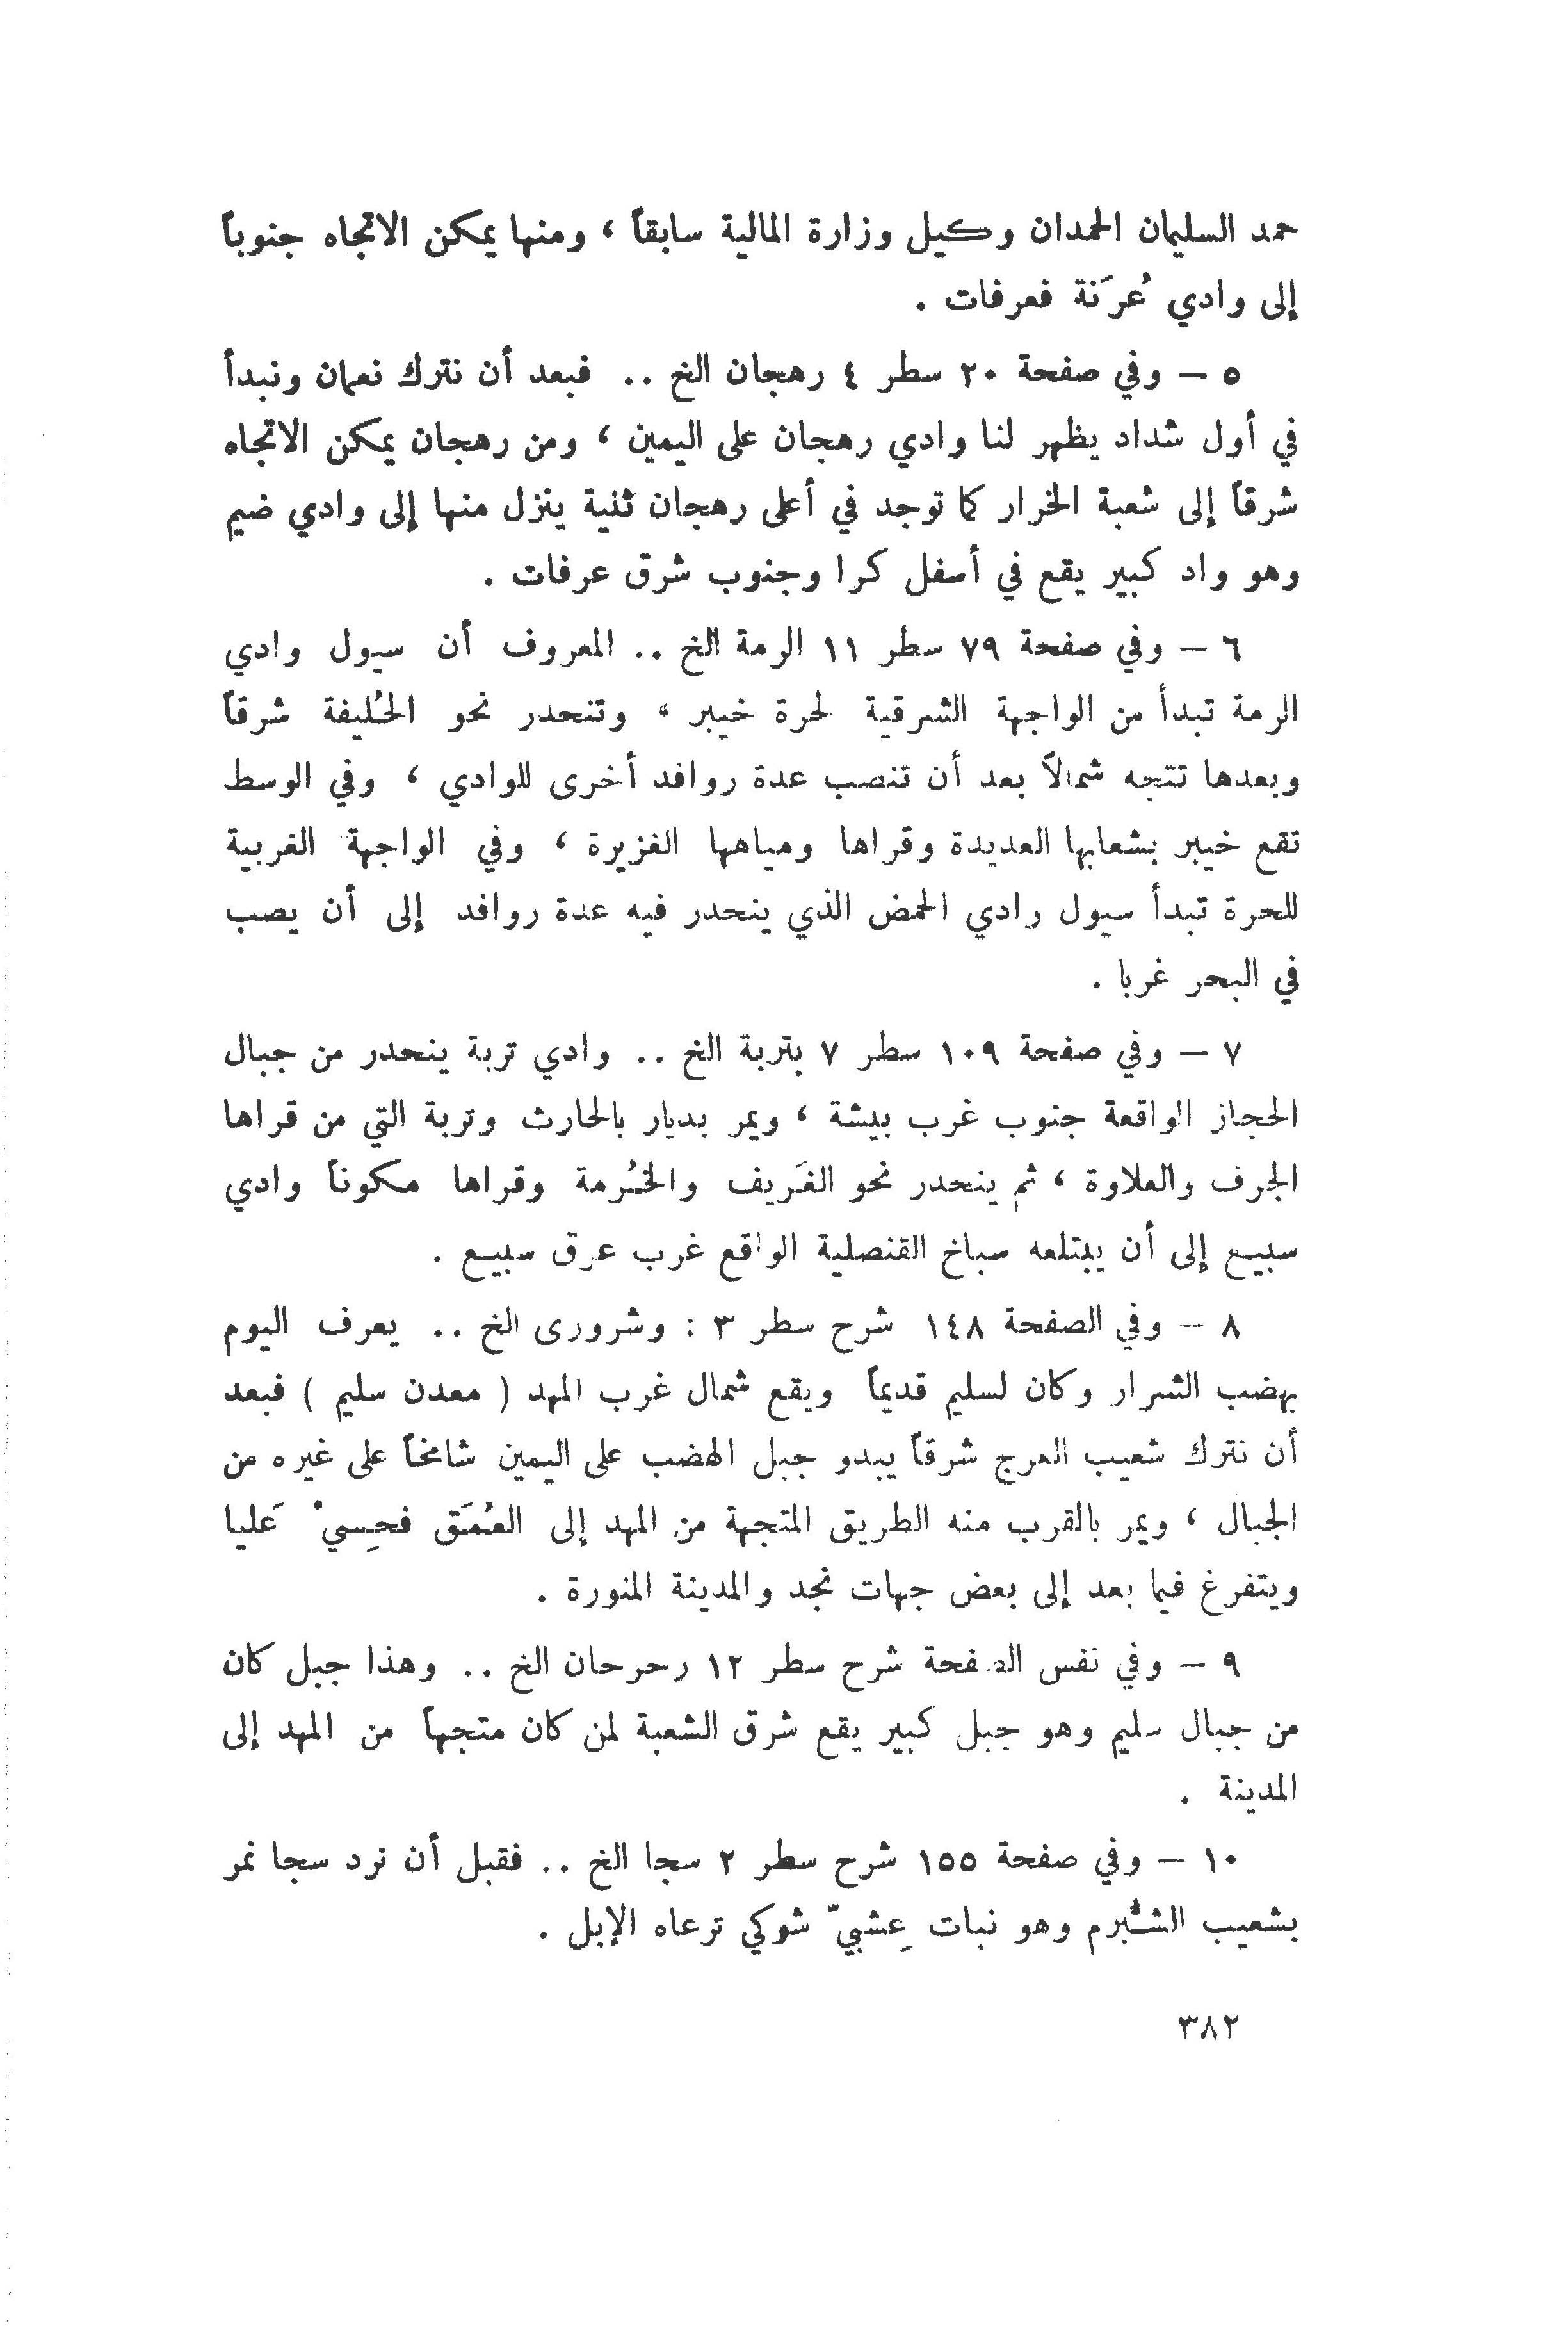 حمد السليمان الحمدان وكيل وزارة المالية سابقاً ، ومنها يمكن الاتجاه جنوباً
إلى وادي عُرَنة فعرفات .
٥ – وفي صفحة ٢٠ سطر ٤ رهجان الخ .. فبعد أن نترك نعمان ونبدأ
في أول شداد يظهر لنا وادي رهجان على اليمين ، ومن رهجان يمكن الاتجاه
شرقاً إلى شعبة الخرار كما توجد في أعلى رهجان ثنية ينزل منها إلى وادي ضيم
وهو واد كبير يقع في أسفل كرا وجنوب شرق عرفات .
٦ – وفي صفحة ٧٩ سطر ١١ الرمة الخ .. المعروف أن سيول وادي
الرمة تبدأ من الواجهة الشرقية لحرة خيبر ، وتنحدر نحو الحُليفة شرقاً
وبعدها تتجه شمالاً بعد أن تنصب عدة روافد أخرى للوادي ، وفي الوسط
تقع خيبر بشعابها العديدة وقراها ومياهها الغزيرة ، وفي الواجهة الغربية
للحرة تبدأ سيول وادي الحمض الذي ينحدر فيه عدة روافد إلى أن يصب
في البحر غربا .
٧ – وفي صفحة ١٠٩ سطر ٧ بتربة الخ .. وادي تربة ينحدر من جبال
الحجاز الواقعة جنوب غرب بيشة ، ويمر بديار بالحارث وتربة التي من قراها
الجرف والعلاوة ، ثم ينحدر نحو الغَريف والخُرمة وقراها مكوناً وادي
سبيع إلى أن يبتلعه سباخ القنصلية الواقع غرب عرق سبيع .
٨ – وفي الصفحة ١٤٨ شرح سطر ٣ : وشرورى الخ .. يعرف اليوم
بهضب الشرار وكان لسليم قديماً ويقع شمال غرب المهد ( معدن سليم ) فبعد
أن نترك شعيب العرج شرقاً يبدو جبل الهضب على اليمين شامخاً على غيره من
الجبال ، ويمر بالقرب منه الطريق المتجهة من المهد إلى العُمَق فحِسيْ عَليا
ويتفرغ فيما بعد إلى بعض جهات نجد والمدينة المنورة .
٩ – وفي نفس الصفحة شرح سطر ١٢ رحرحان الخ .. وهذا جبل كان
من جبال سليم وهو جبل كبير يقع شرق الشعبة لمن كان متجهاً من المهد إلى
المدينة .
١٠ – وفي صفحة ١٥٥ شرح سطر ٢ سجا الخ .. فقبل أن نرد سجا نمر
بشعيب الشُّبرم وهو نبات عِشبيّ شوكي ترعاه الإبل .
٣٨٢